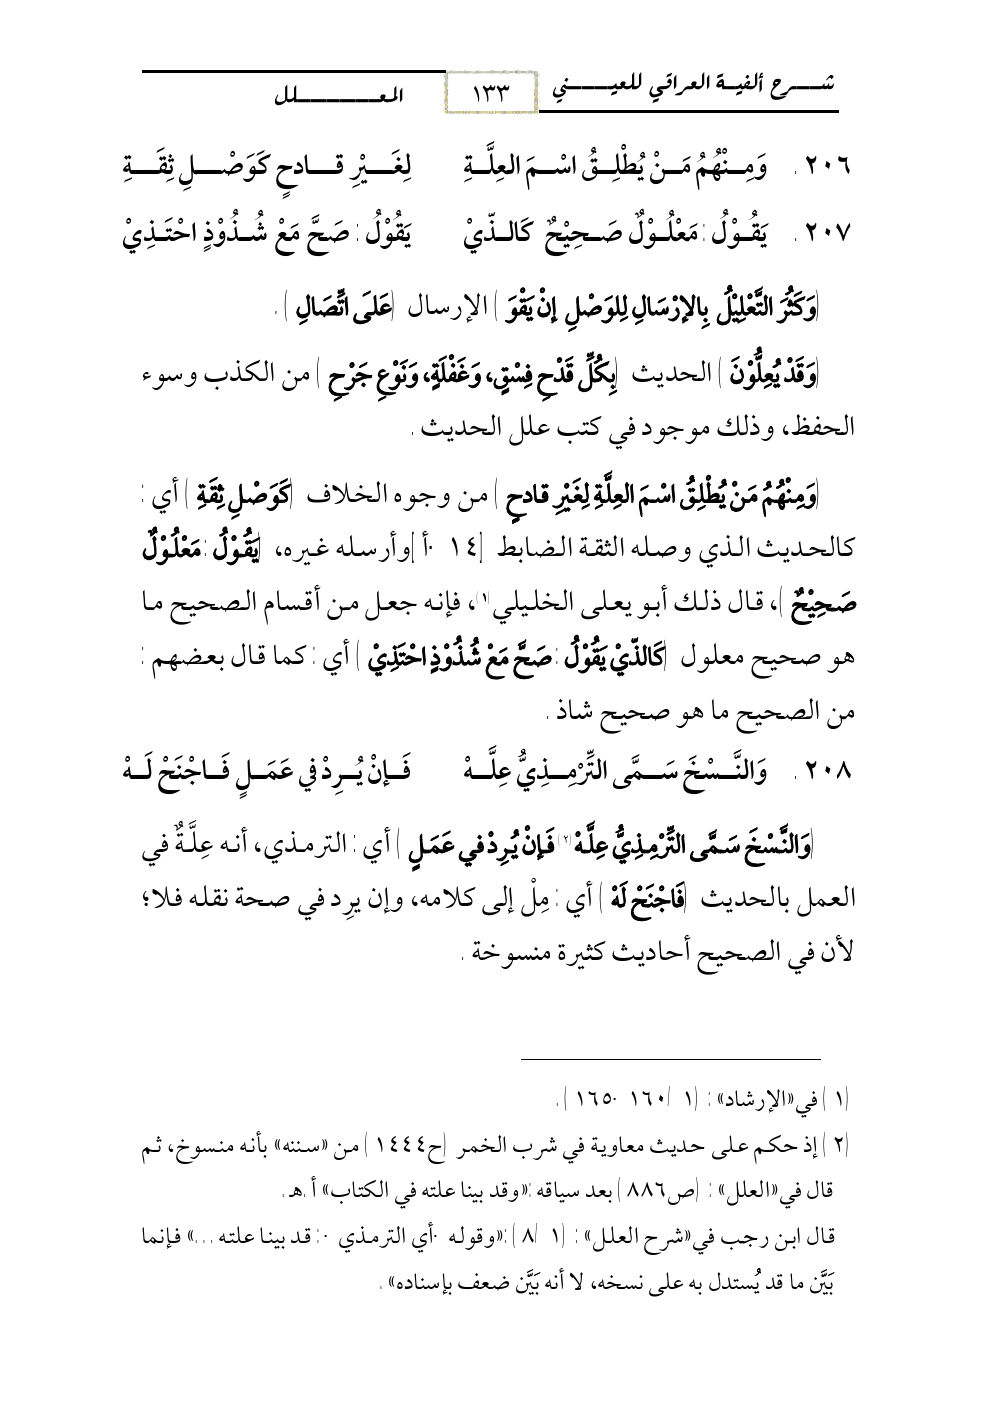 شـــرح ألفيـة العراقي للعينــــي ١٣٣ المعـــــــــلل
٢٠٦. وَمِـنْهُمُ مَـنْ يُطْلِـقُ اسْـمَ العِلَّـةِ لِغَـــيْرِ قـــادحٍ كَوَصْـــلِ ثِقَـــةِ
٢٠٧. يَقُـوْلُ : مَعْلُـوْلٌ صَـحِيْحٌ كَالـذّيْ يَقُوْلُ : صَحَّ مَعْ شُـذُوْذٍ احْتَـذِيْ
(وَكَثُرَ التَّعْلِيْلُ بِالإرْسَالِ لِلوَصْلِ إنْ يَقْوَ) الإرسال (عَلَى اتِّصَالِ).
(وَقَدْ يُعِلُّوْنَ) الحديث (بِكُلِّ قَدْحِ فِسْقٍ، وَغَفْلَةٍ، وَنَوْعِ جَرْحِ) من الكذب وسوء
الحفظ، وذلك موجود في كتب علل الحديث.
(وَمِنْهُمُ مَنْ يُطْلِقُ اسْمَ العِلَّةِ لِغَيْرِ قادحٍ) من وجوه الخلاف (كَوَصْلِ ثِقَةِ) أي:
كالحديث الذي وصله الثقة الضابط [١٤-أ] وأرسله غيره، (يَقُوْلُ: مَعْلُوْلٌ
صَحِيْحٌ)، قال ذلك أبو يعلى الخليلي(١)، فإنه جعل من أقسام الصحيح ما
هو صحيح معلول (كَالذّيْ يَقُوْلُ: صَحَّ مَعْ شُذُوْذٍ احْتَذِيْ) أي: كما قال بعضهم:
من الصحيح ما هو صحيح شاذ.
٢٠٨. وَالنَّـسْخَ سَـمَّى التِّرْمِـذِيُّ عِلَّـهْ فَـإنْ يُـرِدْ في عَمَـلٍ فَـاجْنَحْ لَـهْ
(وَالنَّسْخَ سَمَّى التِّرْمِذِيُّ عِلَّهْ(٢) فَإنْ يُرِدْ في عَمَلٍ) أي: الترمذي، أنه عِلَّةٌ في
العمل بالحديث (فَاجْنَحْ لَهْ) أي: مِلْ إلى كلامه، وإن يرِد في صحة نقله فلا؛
لأن في الصحيح أحاديث كثيرة منسوخة.
(١) في «الإرشاد»: (١/ ١٦٠-١٦٥).
(٢) إذ حكم على حديث معاوية في شرب الخمر (ح١٤٤٤) من «سننه» بأنه منسوخ، ثم
قال في «العلل»: (ص٨٨٦) بعد سياقه: «وقد بينا علته في الكتاب» أ.هـ.
قال ابن رجب في «شرح العلل»: (١/ ٨): «وقوله -أي الترمذي-: قد بينا علته ...» فإنما
بَيَّن ما قد يُستدل به على نسخه، لا أنه بَيَّن ضعف بإسناده».